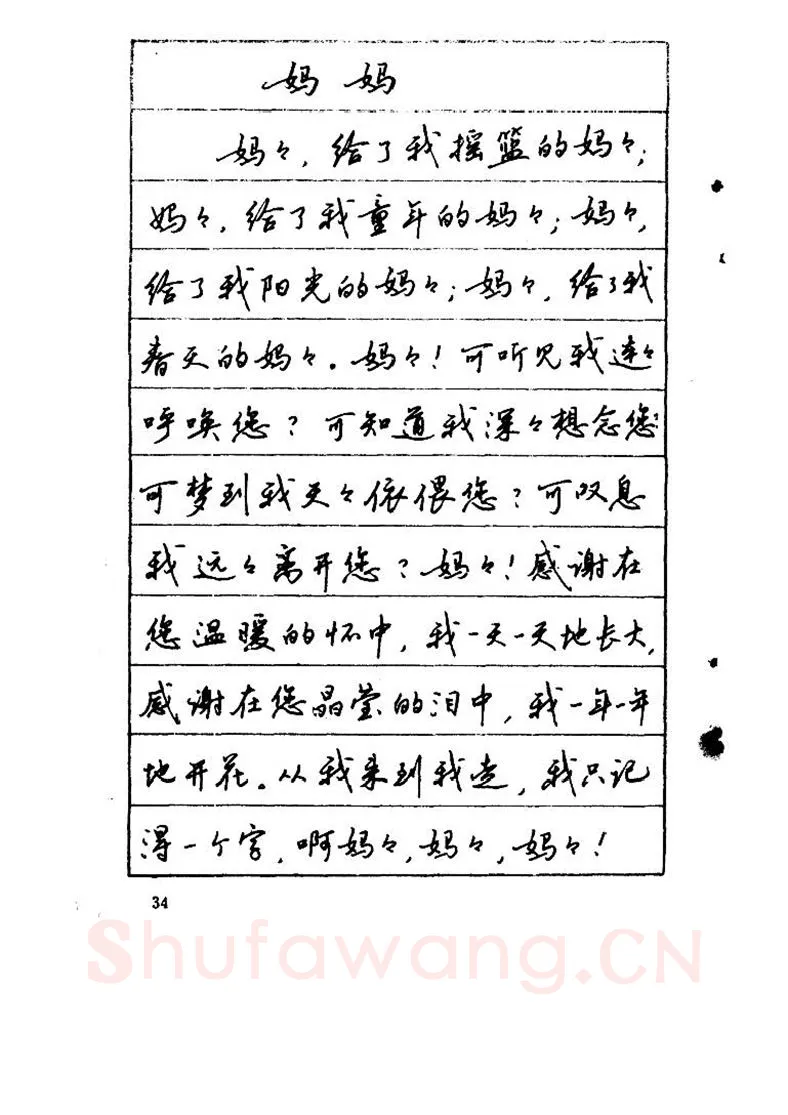 妈 妈
妈々，给了我摇篮的妈々；
妈々，给了我童年的妈々；妈々，
给了我阳光的妈々；妈々，给了我
春天的妈々。妈々！可听见我连々
呼唤您？可知道我深々想念您？
可梦到我天々依偎您？可叹息
我远々离开您？妈々！感谢在
您温暖的怀中，我一天一天地长大，
感谢在您晶莹的泪中，我一年一年
地开花。从我来到我走，我只记
得一个字，啊妈々，妈々，妈々！
34
Shufawang.CN